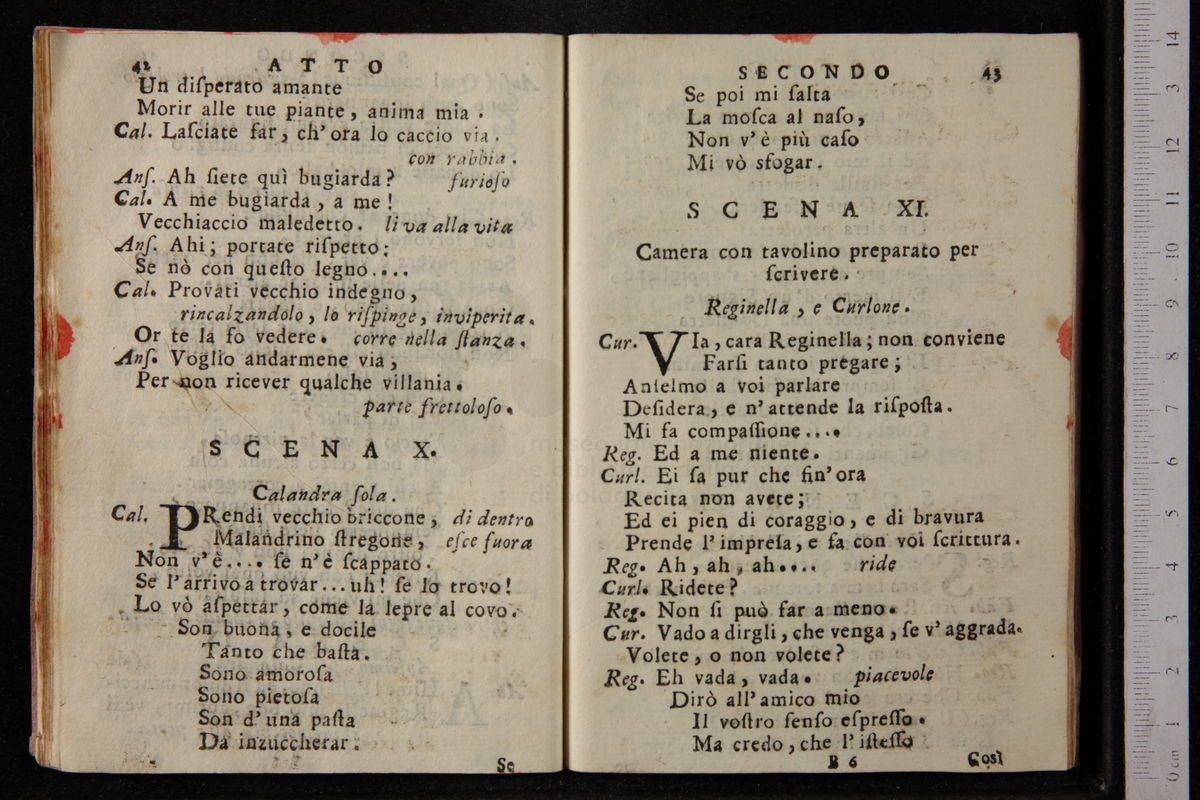 42 ATTO
Un diſperato amante
Morir alle tue piante, anima mia.
Cal. Laſciate far, ch'ora lo caccio via.
con rabbia.
Anſ. Ah ſiete quì bugiarda? furioſo
Cal. A me bugiarda, a me!
Vecchiaccio maledetto. li va alla vita
Anſ. Ahi; portate riſpetto:
Se nò con queſto legno....
Cal. Provati vecchio indegno,
rincalzandolo, lo riſpinge, inviperita.
Or te la fò vedere. corre nella ſtanza.
Anſ. Voglio andarmene via,
Per non ricever qualche villania.
parte frettoloſo.
SCENA X.
Calandra ſola.
Cal. PRendi vecchio briccone, di dentro
Malandrino ſtregone, eſce fuora
Non v'è.... ſe n'è ſcappato.
Se l'arrivo a trovar...uh! ſe lo trovo!
Lo vò aſpettar, come la lepre al covo.
Son buona, e docile
Tanto che baſta.
Sono amoroſa
Sono pietoſa
Son d'una paſta
Da inzuccherar.
Se
SECONDO 43
Se poi mi ſalta
La moſca al naſo,
Non v'è più caſo
Mi vò sfogar.
SCENA XI.
Camera con tavolino preparato per
ſcrivere.
Reginella, e Curlone.
Cur. VIa, cara Reginella; non conviene
Farſi tanto pregare;
Anſelmo a voi parlare
Deſidera, e n'attende la riſpoſta.
Mi fa compaſſione....
Reg. Ed a me niente.
Curl. Ei ſa pur che fin'ora
Recita non avete;
Ed ei pien di coraggio, e di bravura
Prende l'impreſa, e fa con voi ſcrittura.
Reg. Ah, ah, ah.... ride
Curl. Ridete?
Reg. Non ſi può far a meno.
Cur. Vado a dirgli, che venga, ſe v'aggrada.
Volete, o non volete?
Reg. Eh vada, vada. piacevole
Dirò all'amico mio
Il voſtro ſenſo eſpreſſo.
Ma credo, che l'iſteſſo
B 6 Così
0 cm 1 2 3 4 5 6 7 8 9 10 11 12 13 14